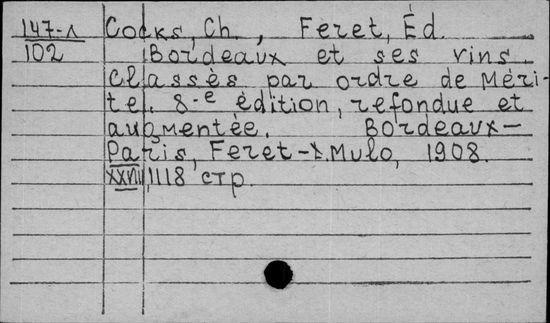 147-1 Cocks, Ch., Feret, Éd.
102 Bordeaux et ses vins
classés par ordre de Méri-
te. 8-e édition, refondue et
augmentée. Bordeaux-
Paris, Feret-L.Mulo, 1908.
XXVIII, 1118 стр.